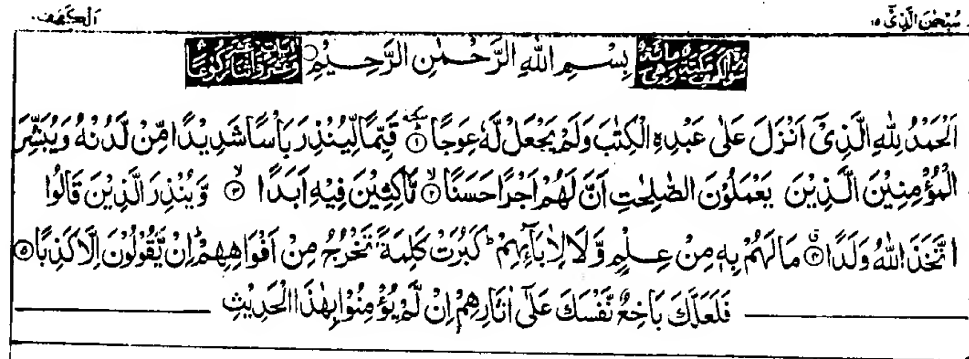 سُبْحٰنَ الَّذِیْٓ ١٥ اَلْکَهْف
سُوْرَةُ الْکَهْفِ مَکِّیَّةٌ وَّهِیَ مِائَةٌ بِسْمِ اللّٰهِ الرَّحْمٰنِ الرَّحِیْمِ
اَلْحَمْدُ لِلّٰهِ الَّذِیْٓ اَنْزَلَ عَلٰی عَبْدِهِ الْکِتٰبَ وَلَمْ یَجْعَلْ لَّهٗ عِوَجًا ﴿١﴾ قَیِّمًا لِّیُنْذِرَ بَاْسًا شَدِیْدًا مِّنْ لَّدُنْهُ وَیُبَشِّرَ
الْمُؤْمِنِیْنَ الَّذِیْنَ یَعْمَلُوْنَ الصّٰلِحٰتِ اَنَّ لَهُمْ اَجْرًا حَسَنًا ﴿٢﴾ مَّاکِثِیْنَ فِیْهِ اَبَدًا ﴿٣﴾ وَّیُنْذِرَ الَّذِیْنَ قَالُوا
اتَّخَذَ اللّٰهُ وَلَدًا ﴿٤﴾ مَا لَهُمْ بِهٖ مِنْ عِلْمٍ وَّلَا لِاٰبَآئِهِمْ ؕ کَبُرَتْ کَلِمَةً تَخْرُجُ مِنْ اَفْوَاهِهِمْ ؕ اِنْ یَّقُوْلُوْنَ اِلَّا کَذِبًا ﴿٥﴾
فَلَعَلَّکَ بَاخِعٌ نَّفْسَکَ عَلٰٓی اٰثَارِهِمْ اِنْ لَّمْ یُؤْمِنُوْا بِهٰذَا الْحَدِیْثِ